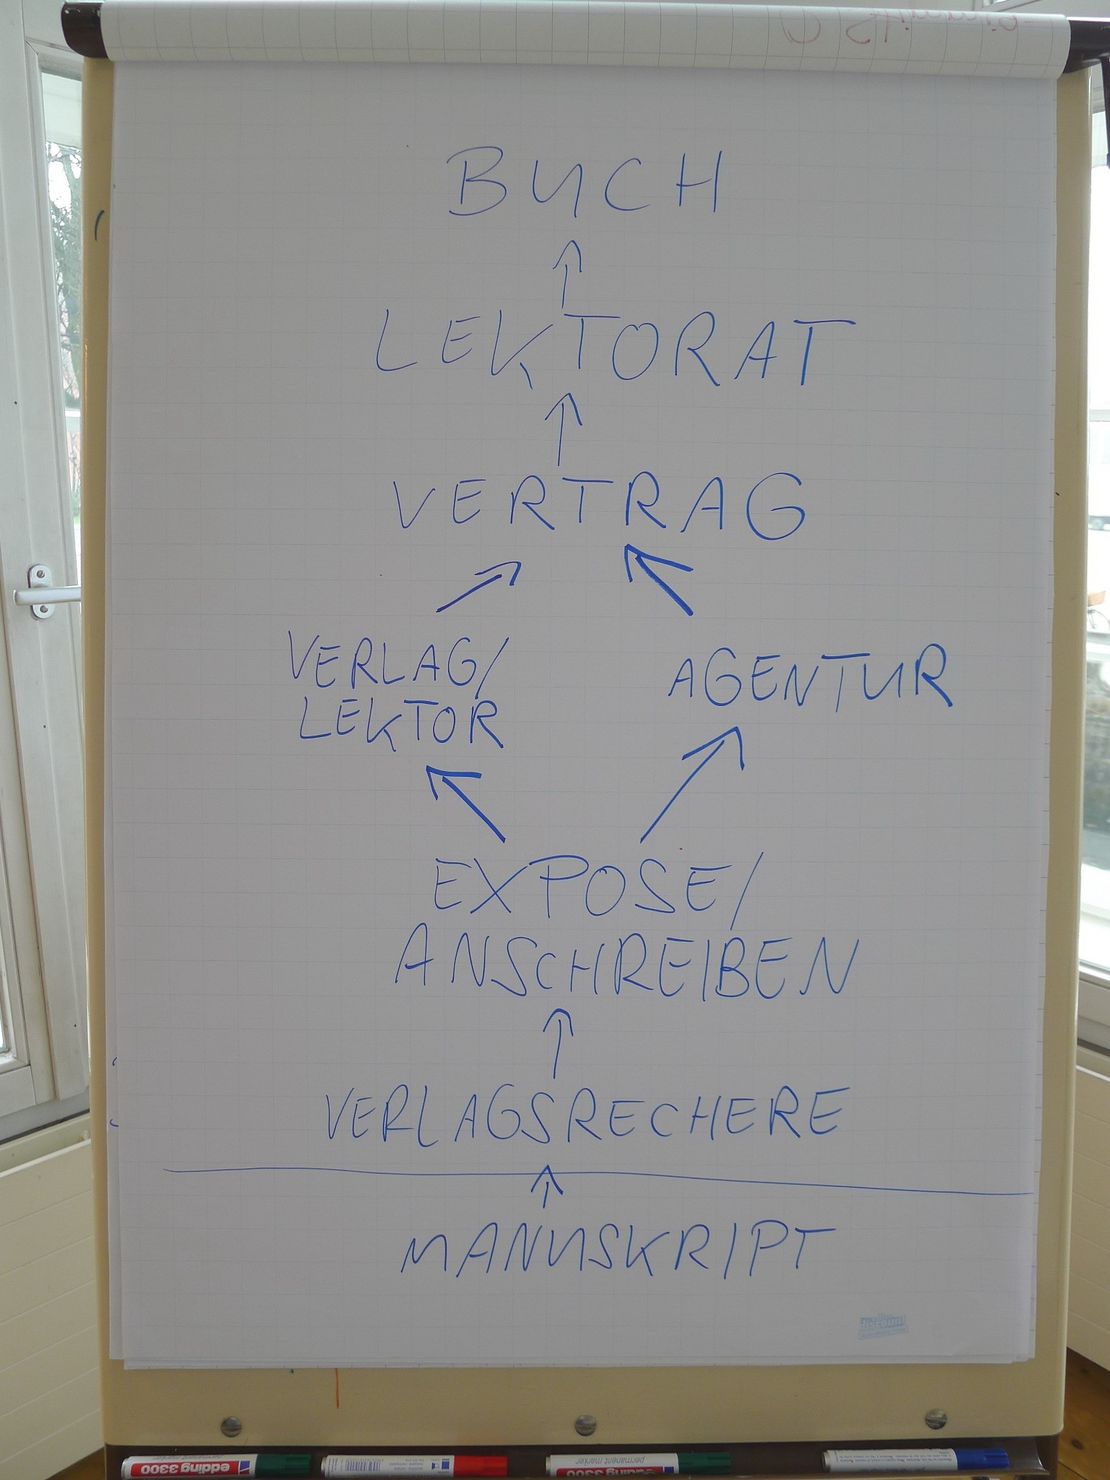 BUCH
LEKTORAT
VERTRAG
VERLAG/
LEKTOR
AGENTUR
EXPOSE/
ANSCHREIBEN
VERLAGSRECHERE
MANUSKRIPT
edding 3300
permanent marker